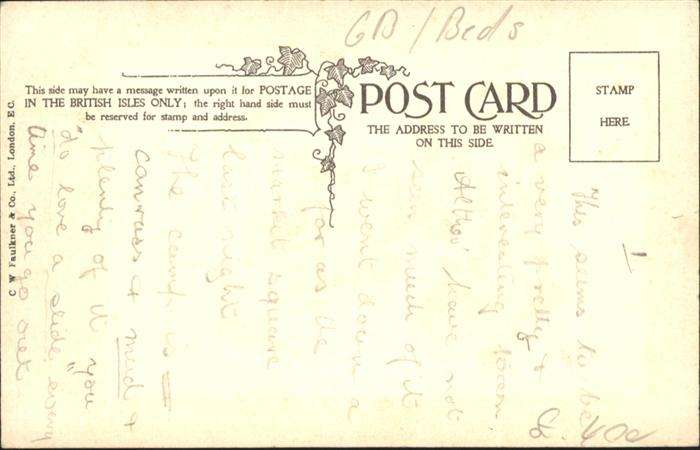 GB / Beds
This side may have a message written upon it for POSTAGE
IN THE BRITISH ISLES ONLY; the right hand side must
be reserved for stamp and address.
POST CARD
THE ADDRESS TO BE WRITTEN
ON THIS SIDE.
STAMP
HERE
C W Faulkner & Co., Ltd., London, E.C.
1
This seems to be
a very pretty &
interesting town
Altho' have not
seen much of it
I went down a
far as the
market square
last night
The camp is
canvass & mud &
plenty of it you
"do love a slide" every
time you go out